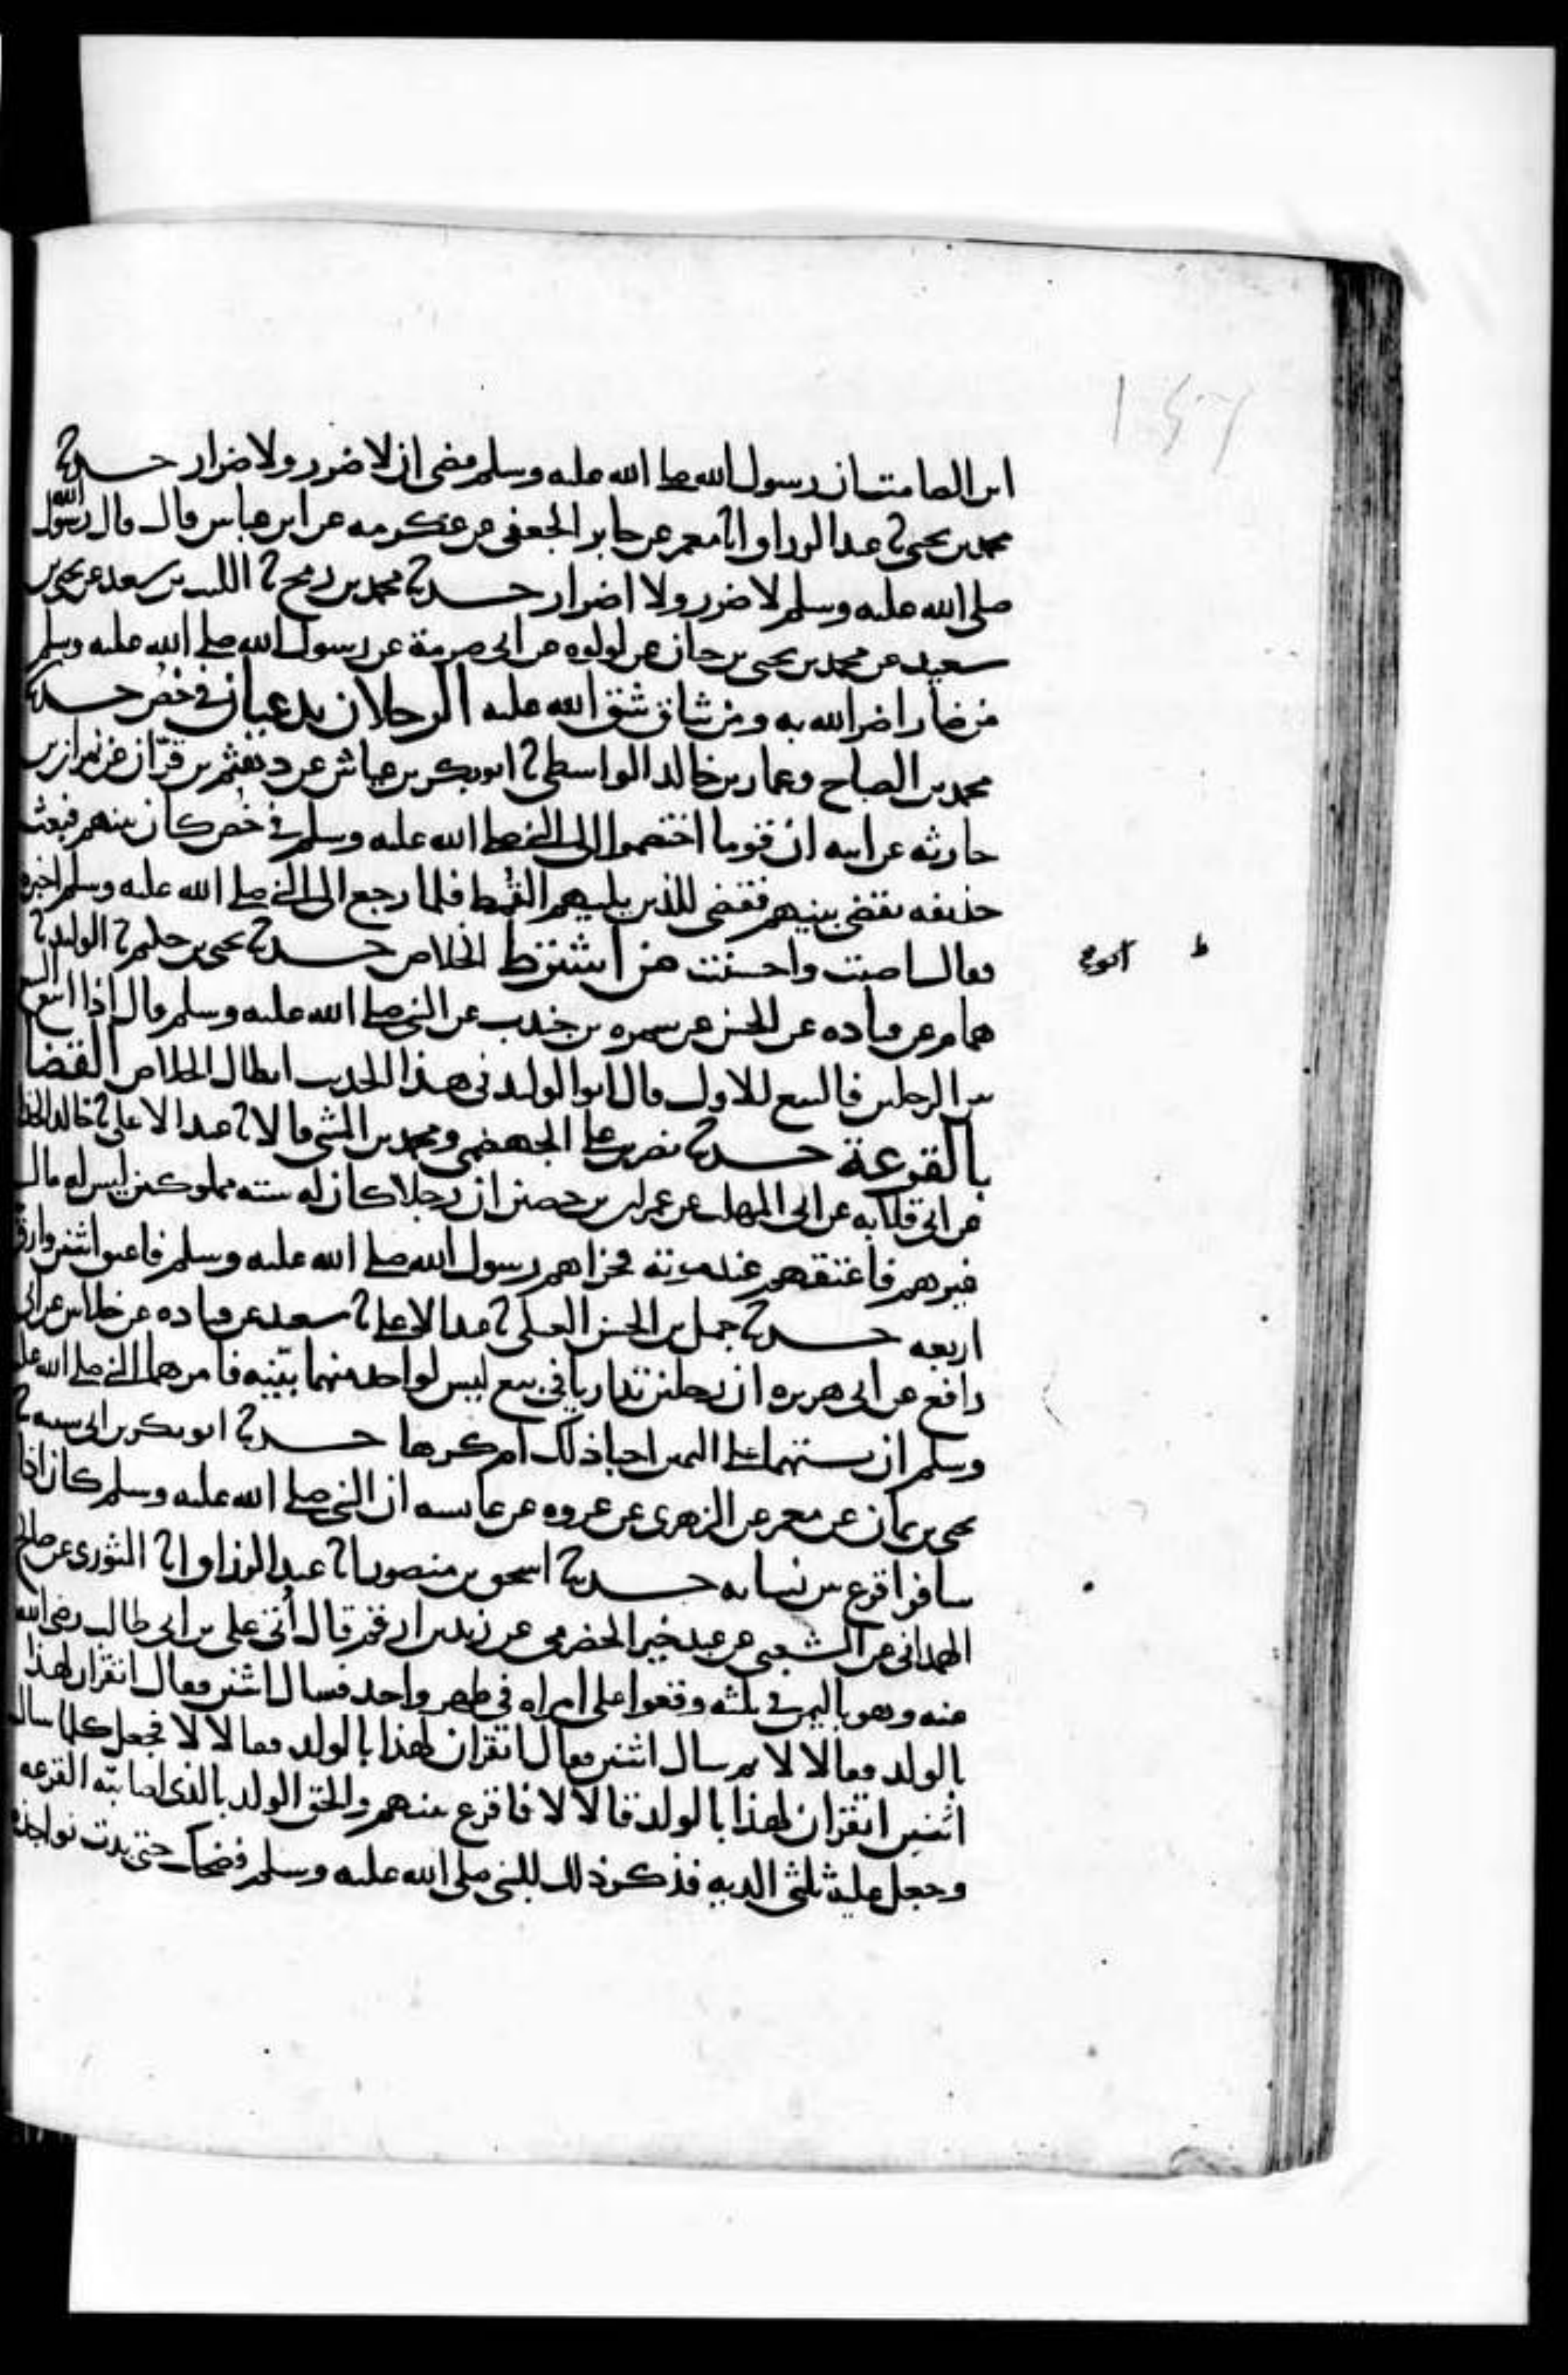 ابن الصامت ان رسول الله صلى الله عليه وسلم قضى ان لا ضرر ولا ضرار حدثنا
محمد بن يحيى ثنا عبد الرزاق انا معمر عن جابر الجعفي عن عكرمه عن ابن عباس قال قال رسول الله
صلى الله عليه وسلم لا ضرر ولا اضرار حدثنا محمد بن رمح ثنا الليث بن سعد عن يحيى بن
سعيد عن محمد بن يحيى بن حبان عن لولوه عن ابي صرمة عن رسول الله صلى الله عليه وسلم
من ضار اضر الله به ومن شاق شق الله عليه الرجلان يدعيان في خص حدثنا
محمد بن الصباح وعمار بن خالد الواسطي ثنا ابو بكر بن عياش عن دهثم بن قران عن نمران بن
حارثه عن ابيه ان قوما اختصموا الى النبي صلى الله عليه وسلم في خص كان بينهم فبعث
حذيفه يقضي بينهم فقضى للذين يليهم القمط فلما رجع الى النبي صلى الله عليه وسلم اخبره
فقال اصبت واحسنت من اشترط الخلاص حدثنا يحيى بن حكيم ثنا ابو الوليد ثنا
همام عن قتاده عن الحسن عن سمره بن جندب عن النبي صلى الله عليه وسلم قال اذا ابيع البيع
من الرجلين فالبيع للاول قال ابو الوليد في هذا الحديث ابطال الخلاص القضا
بالقرعة حدثنا نصر بن علي الجهضمي ومحمد بن المثنى قالا ثنا عبد الاعلى ثنا خالد الحذا
عن ابي قلابه عن ابي المهلب عن عمران بن حصين ان رجلا كان له سته مملوكين ليس له مال
غيرهم فاعتقهم عند موته فجزاهم رسول الله صلى الله عليه وسلم فاعتق اثنين وارق
اربعه حدثنا جميل بن الحسن العتكي ثنا عبد الاعلى ثنا سعيد عن قتاده عن خلاس عن ابي
رافع عن ابي هريره ان رجلين تداريا في بيع ليس لواحد منهما بينه فامرهما النبي صلى الله عليه
وسلم ان يستهما على اليمين احبا ذلك ام كرها حدثنا ابو بكر بن ابي شيبه ثنا
يحيى بن يمان عن معمر عن الزهري عن عروه عن عايشه ان النبي صلى الله عليه وسلم كان اذا
سافر اقرع بين نسايه حدثنا اسحق بن منصور انا عبد الرزاق انا الثوري عن صالح
الهمداني عن الشعبي عن عبد خير الحضرمي عن زيد بن ارقم قال أتي علي بن ابي طالب رضي الله
عنه وهو باليمن في ثلثه وقعوا على امراه في طهر واحد فسال اثنين فقال اتقران لهذا
بالولد فقالا لا ثم سال اثنين فقال اتقران لهذا بالولد فقالا لا فجعل كلما سال
اثنين اتقران لهذا بالولد قالا لا فاقرع بينهم والحق الولد بالذي اصابته القرعه
وجعل عليه ثلثي الديه فذكر ذلك للنبي صلى الله عليه وسلم فضحك حتى بدت نواجذه